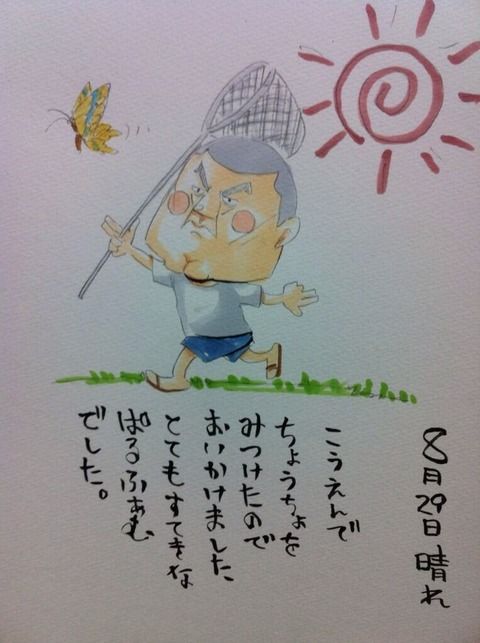 8月29日 晴れ
こうえんで
ちょうちょを
みつけたので
おいかけました、
とてもすてきな
ぱるふぁむ
でした。